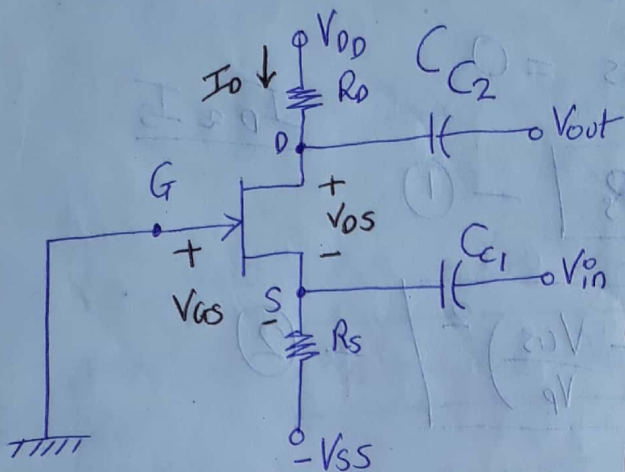 V_DD
I_D ↓
R_D
C_C2
D
Vout
G
+
V_DS
-
+
V_GS
-
S
C_C1
Vin
R_S
-V_SS